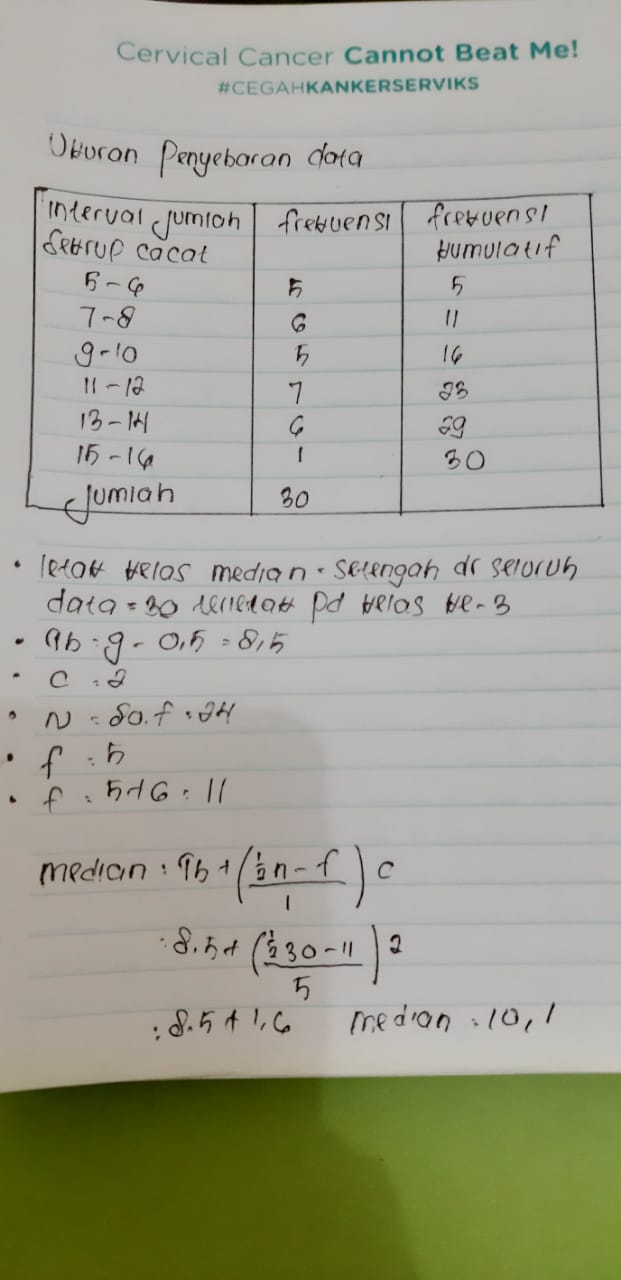 Cervical Cancer Cannot Beat Me!
#CEGAHKANKERSERVIKS
Ukuran Penyebaran data
interval jumlah frekuensi frekuensi
Sekrup cacat kumulatif
5-6 5 5
7-8 6 11
9-10 5 16
11-12 7 23
13-14 6 29
15-16 1 30
jumlah 30
• letak kelas median = setengah dr seluruh
data = 30 terletak pd kelas ke-3
• qb = 9 - 0,5 = 8,5
• c = 2
• N = 30. f = 24
• f = 5
• f = 5+6 = 11
median = qb + (½n - f / 1) c
= 8.5 + (½ 30 - 11 / 5) 2
= 8.5 + 1,6 median = 10,1